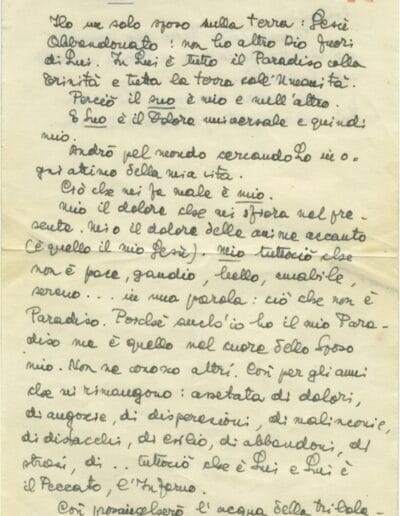 Ho un solo sposo sulla terra: Gesù
Abbandonato: non ho altro Dio fuori
di Lui. In Lui è tutto il Paradiso colla
Trinità e tutta la terra coll'Umanità.
Perciò il suo è mio e null'altro.
E Suo è il Dolore universale e quindi
mio.
Andrò pel mondo cercandoLo in o-
gni attimo della mia vita.
Ciò che mi fa male è mio.
Mio il dolore che mi sfiora nel pre-
sente. Mio il dolore delle anime accanto
(è quello il mio Gesù). Mio tutto ciò che
non è pace, gaudio, bello, amabile,
sereno... in una parola: ciò che non è
Paradiso. Poiché anch'io ho il mio Para-
diso ma è quello nel cuore dello Sposo
mio. Non ne conosco altri. Così per gli anni
che mi rimangono: assetata di dolori,
di angoscie, di disperazioni, di malinconie,
di distacchi, di esilio, di abbandoni, di
strazi, di.. tutto ciò che è Lui e Lui è
il Peccato, l'Inferno.
Così prosciugherò l'acqua della tribola-